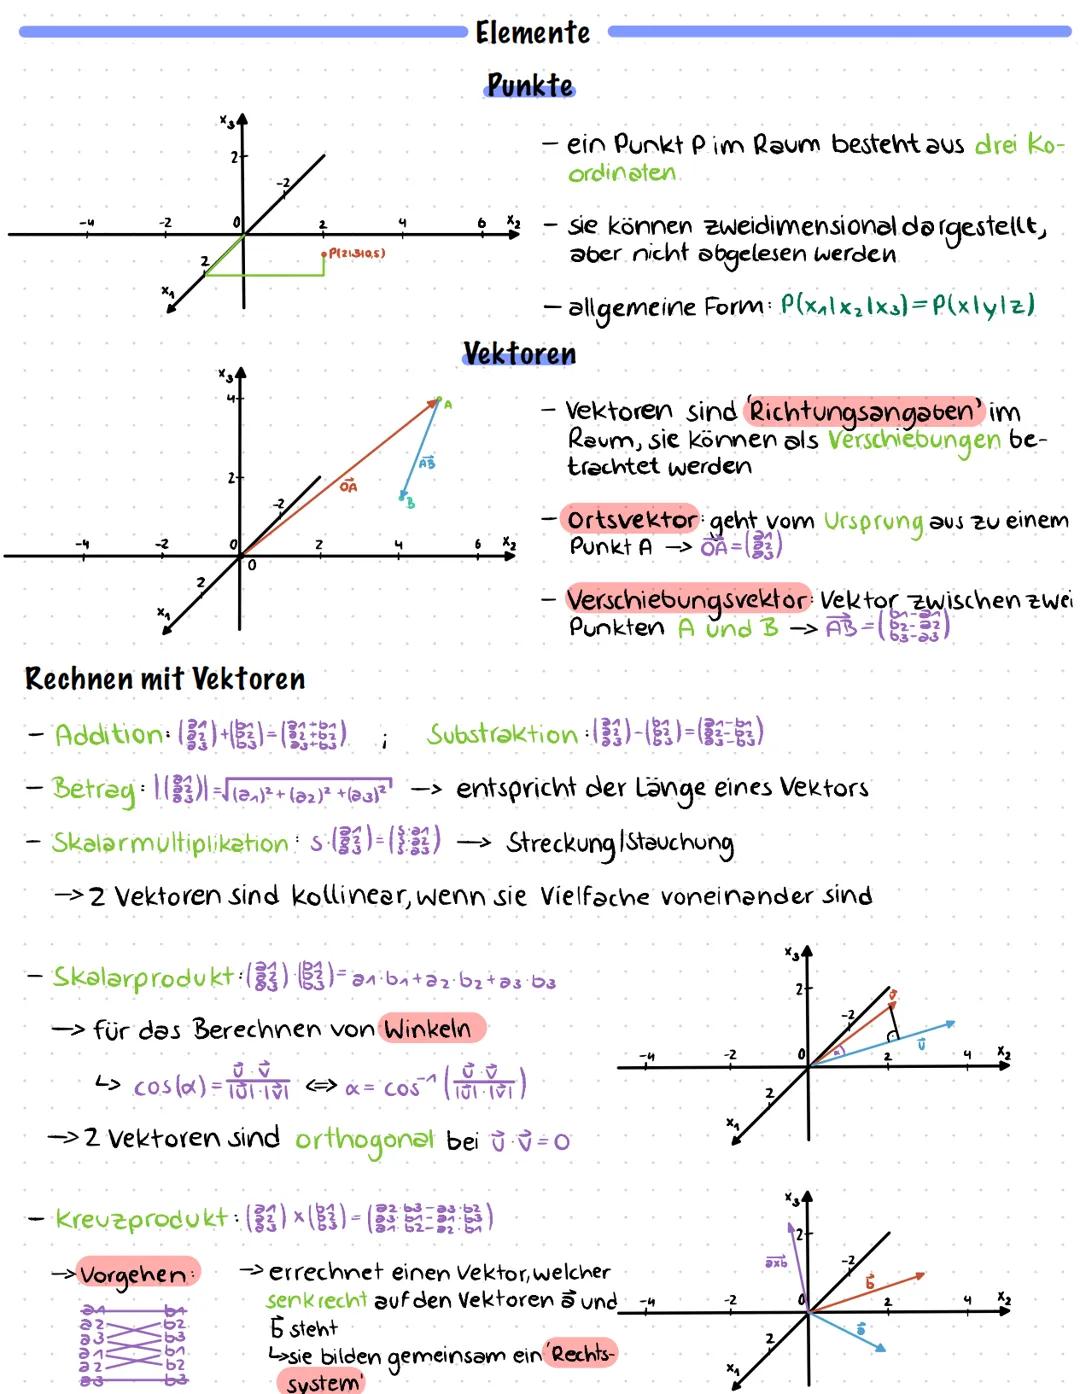 Elemente
Punkte
x3
2
-2
-4 -2 0 2 4 6 x2
P(2|3|0,5)
2
x1
- ein Punkt P im Raum besteht aus drei Ko-
ordinaten
- sie können zweidimensional dargestellt,
aber nicht abgelesen werden
- allgemeine Form: P(x1|x2|x3)=P(x|y|z)
Vektoren
x3
4
A
AB→
2
OA→
-2
B
-4 -2 0 2 4 6 x2
0
2
x1
- Vektoren sind 'Richtungsangaben' im
Raum, sie können als Verschiebungen be-
trachtet werden
- Ortsvektor: geht vom Ursprung aus zu einem
Punkt A → OA→=(a1 a2 a3)
- Verschiebungsvektor: Vektor zwischen zwei
Punkten A und B → AB→=(b1-a1 b2-a2 b3-a3)
Rechnen mit Vektoren
- Addition: (a1 a2 a3)+(b1 b2 b3)=(a1+b1 a2+b2 a3+b3) ; Substraktion: (a1 a2 a3)-(b1 b2 b3)=(a1-b1 a2-b2 a3-b3)
- Betrag: |(a1 a2 a3)|=√(a1)²+(a2)²+(a3)² → entspricht der Länge eines Vektors
- Skalarmultiplikation: s·(a1 a2 a3)=(s·a1 s·a2 s·a3) → Streckung/Stauchung
→ 2 Vektoren sind kollinear, wenn sie Vielfache voneinander sind
- Skalarprodukt: (a1 a2 a3)·(b1 b2 b3)=a1·b1+a2·b2+a3·b3
→ für das Berechnen von Winkeln
↳ cos(α)=u→·v→/|u→|·|v→| ⇔ α=cos⁻¹(u→·v→/|u→|·|v→|)
→ 2 Vektoren sind orthogonal bei u→·v→=0
x3
2
v→
-2
α
u→
-4 -2 0 2 4 x2
2
x1
- Kreuzprodukt: (a1 a2 a3)×(b1 b2 b3)=(a2·b3-a3·b2 a3·b1-a1·b3 a1·b2-a2·b1)
→ Vorgehen:
a1 b1
a2 b2
a3 b3
a1 b1
a2 b2
a3 b3
→ errechnet einen Vektor, welcher
senkrecht auf den Vektoren a→ und
b→ steht
↳ sie bilden gemeinsam ein 'Rechts-
system'
x3
2
a×b→
-2
b→
-4 -2 0 2 4 x2
a→
2
x1